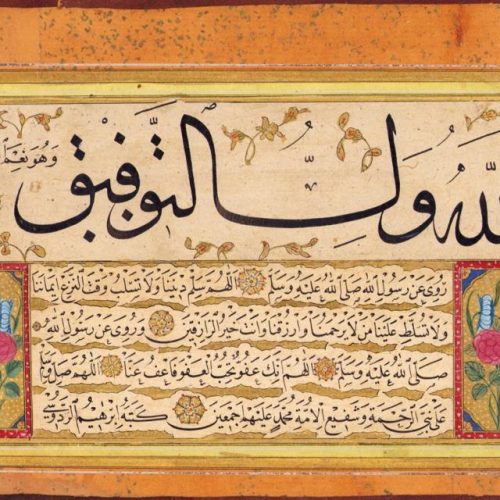 الله ولي التوفيق وهو نعم
روي عن رسول الله صلى الله عليه وسلم اللهم ثبتنا ولا تسلب وقت النزع ايماننا
ولا تسلط علينا من لا يرحمنا وارزقنا وانت خير الرازقين وروي عن رسول الله
صلى الله عليه وسلم اللهم انك عفو تحب العفو فاعف عنا اللهم صل وسلم
على نبي الرحمة وشفيع الامة محمد وعليهم اجمعين كتبه ابرهيم